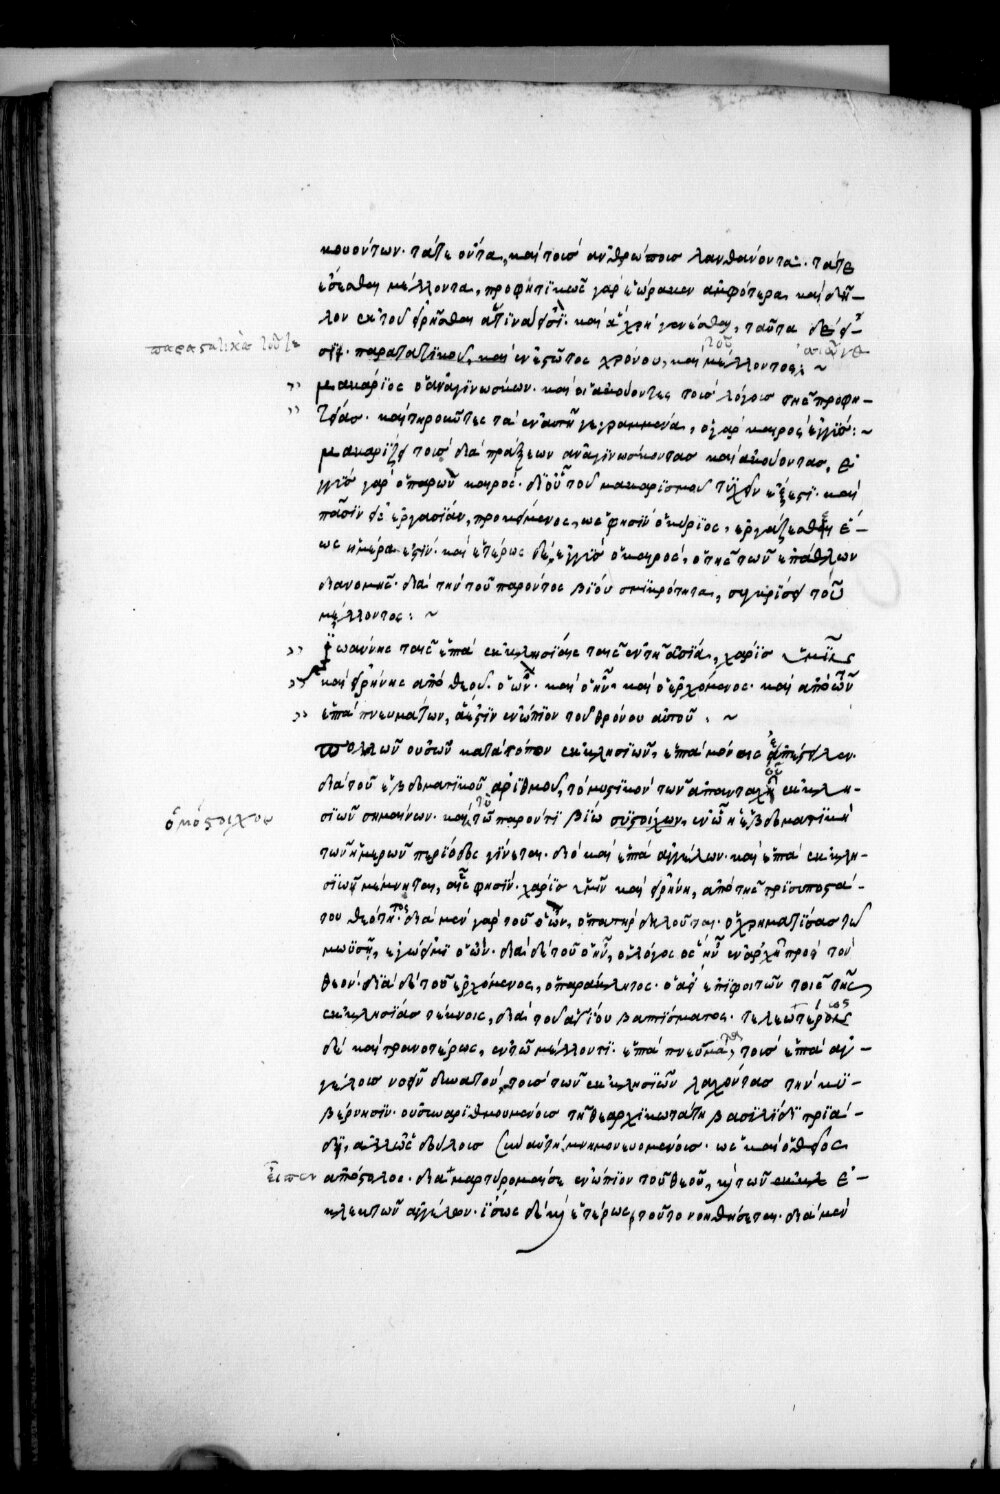 κουόντων· τάτε ὄντα, καὶ τοῖσ ἀνθρώποισ λανθάνοντα· τάτε
ἔσεσθαι μέλλοντα, προφητικῶς γὰρ ἑώρακεν ἀμφότερα· καὶ δῆ-
λον ἐκ τοῦ εἰρῆσθαι ἅτινα εἰσὶ· καὶ ἃ χρὴ γενέσθαι, ταῦτα δὲ
παραστατικὰ τοῦτε
παρατατικοῦ, καὶ ἐνεστῶτος χρόνου, καὶ τοῦ μέλλοντος:~
μακάριος ὁ ἀναγινώσκων· καὶ οἱ ἀκούοντες τοὺσ λόγουσ τῆς προφη-
τείασ· καὶ τηροῦντες τὰ ἐν αὐτῇ γεγραμμένα, ὁ γὰρ καιρὸς ἐγγύσ:~
μακαρίζει τοὺσ διὰ πράξεων ἀναγινώσκοντασ καὶ ἀκούοντασ, ἐ
γγὺσ γὰρ ὁ παρὼν καιρός· δι' οὗ τοῦ μακαρισμοῦ τύχειν ἔξεστι· καὶ
πᾶσιν ἡ ἐργασία, προκείμενος, ὡς φησὶν ὁ κύριος, ἐργάζεσθε ἕ-
ως ἡμέρα ἐστίν· καὶ ἑτέρως δὲ, ἐγγὺσ ὁ καιρός, ὁ τῆς τῶν ἐπάθλων
διανομῆς· διὰ τὴν τοῦ παρόντος βίου σμικρότητα, συγκρίσει τοῦ
μέλλοντος:~
Ἰωάννης ταῖς ἑπτὰ ἐκκλησίαις ταῖς ἐν τῇ ἀσίᾳ, χάρισ ὑμῖν
καὶ εἰρήνης ἀπὸ θεοῦ· ὁ ὢν· καὶ ὁ ἦν· καὶ ὁ ἐρχόμενος· καὶ ἀπὸ τῶν
ἑπτὰ πνευμάτων, ἅ ἐστιν ἐνώπιον τοῦ θρόνου αὐτοῦ:~
πολλῶν οὐσῶν κατὰ τόπον ἐκκλησιῶν, ἑπτὰ μόναις ἐπέστειλεν·
διὰ τοῦ ἑβδοματικοῦ ἀριθμοῦ, τὸ μυστικὸν τῶν ἁπανταχοῦ ἐκκλη-
ὁμόστοιχος
σιῶν σημαίνων· καὶ τῷ παρόντι βίῳ σύστοιχον, ἐν ᾧ ἡ ἑβδοματικὴ
τῶν ἡμερῶν περίοδος γίνεται· διὸ καὶ ἑπτὰ ἀγγέλων· καὶ ἑπτὰ ἐκκλη-
σιῶν μέμνηται, αἷς φησίν· χάρισ ὑμῖν καὶ εἰρήνη, ἀπὸ τῆς τρισυποστά-
του θεότητος· διὰ μὲν γὰρ τοῦ ὁ ὤν, ὁ πατὴρ δηλοῦται· ὁ χρηματίσασ τῷ
μωϋσῇ, ἐγώ εἰμι ὁ ὤν· διὰ δὲ τοῦ ὁ ἦν, ὁ λόγος ὃς ἦν ἐν ἀρχῇ πρὸς τὸν
θεόν· διὰ δὲ τοῦ ἐρχόμενος, ὁ παράκλητος· ὁ ἀεὶ ἐπιφοιτῶν τοῖς τῆς
ἐκκλησίασ τέκνοις, διὰ τοῦ ἁγίου βαπτίσματος· τελεωτέρως
δὲ καὶ τρανοτέρως, ἐν τῷ μέλλοντι· ἑπτὰ πνεύματα, τοὺσ ἑπτὰ ἀγ-
γέλουσ νοεῖν δυνατὸν, τοὺσ τῶν ἐκκλησιῶν λαχόντασ τὴν κυ-
βέρνησιν· οὐ συναριθμουμένουσ τῇ θεαρχικωτάτῃ βασιλίδι τριά-
δι, ἀλλ' ὡς δούλουσ σὺν αὐτῇ μνημονευομένουσ· ὡς καὶ ὁ θεῖος
εἶπεν
ἀπόστολος· διαμαρτύρομαί σε ἐνώπιον τοῦ θεοῦ, καὶ τῶν ἐκκλ ἐ-
κλεκτῶν ἀγγέλων· ἴσως δὲ καὶ ἑτέρως τοῦτο νοηθήσεται· διὰ μὲν